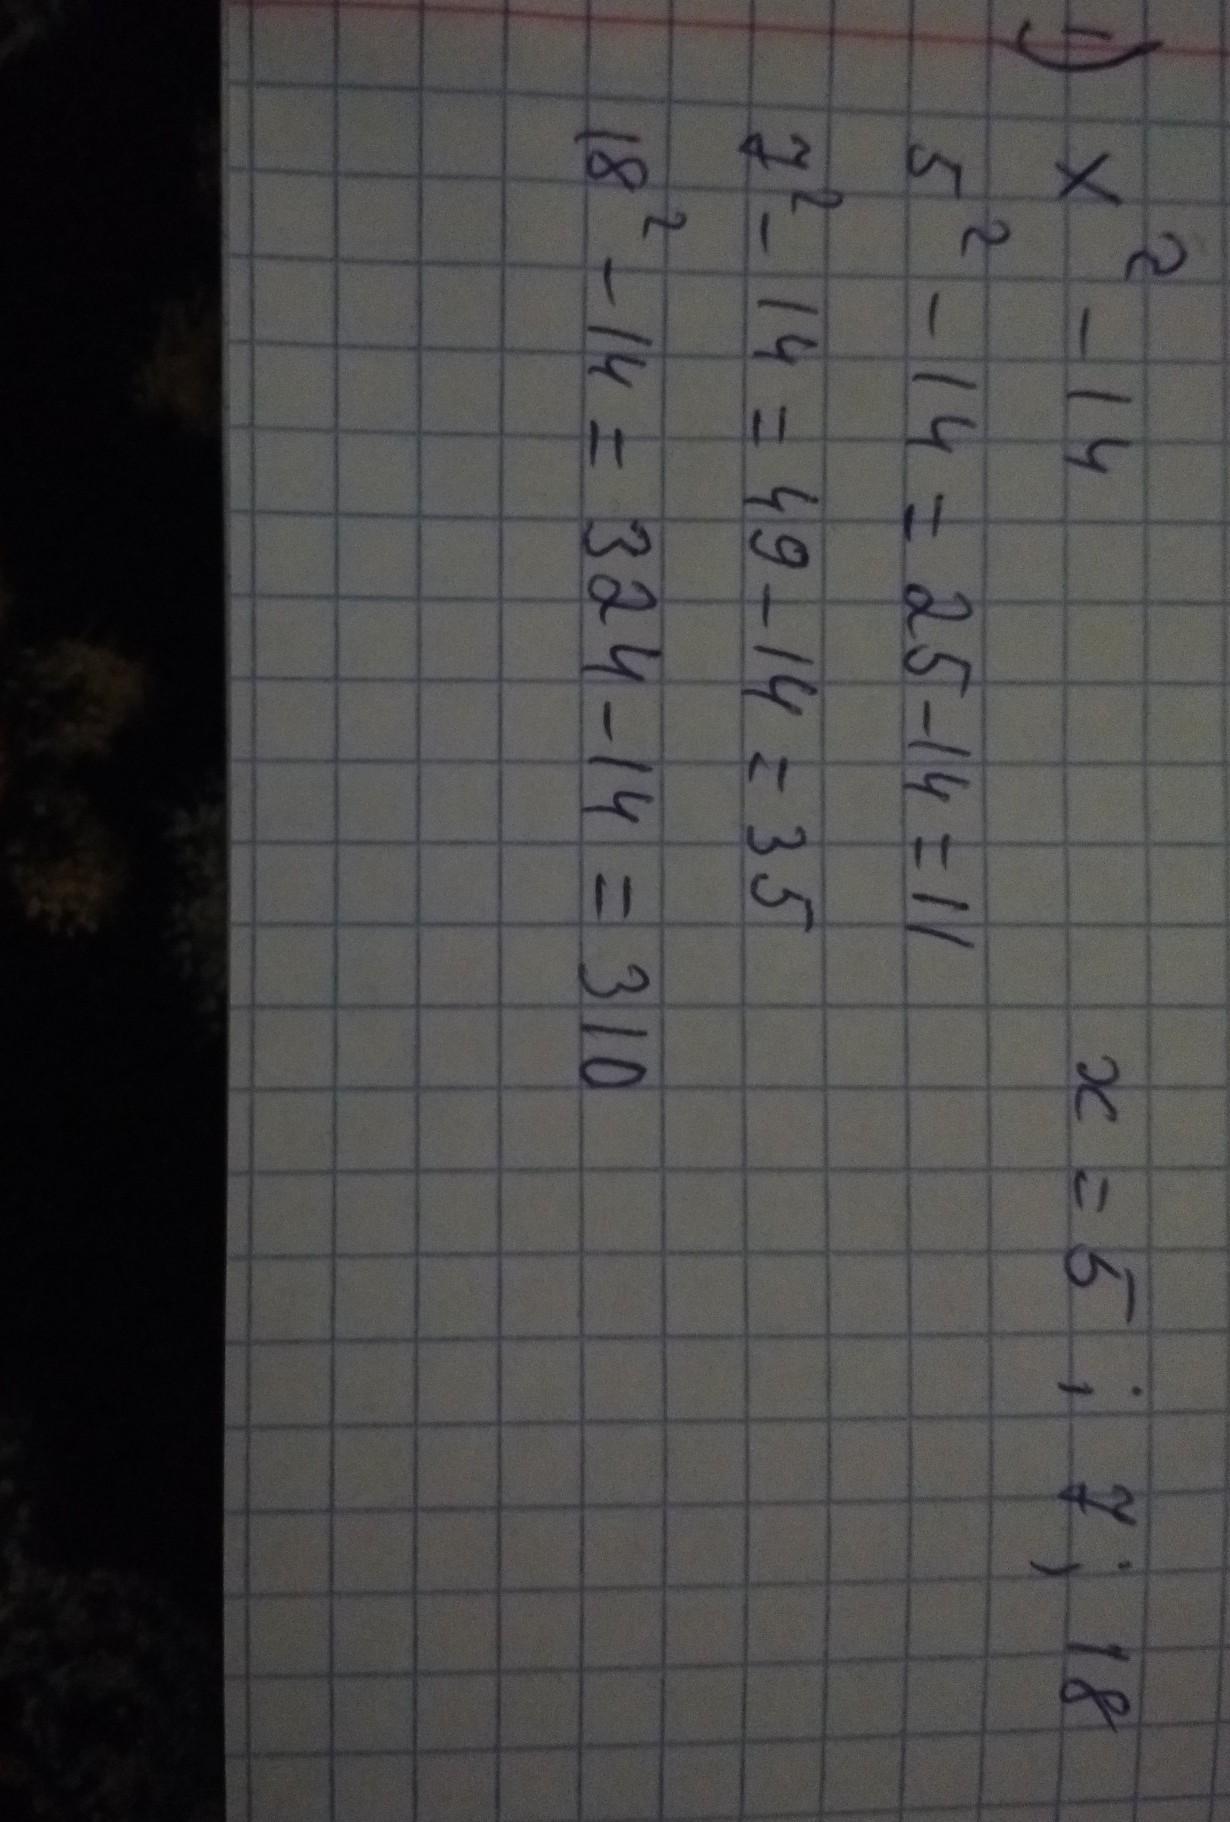 1) x² - 14 x = 5; 7; 18
5² - 14 = 25 - 14 = 11
7² - 14 = 49 - 14 = 35
18² - 14 = 324 - 14 = 310